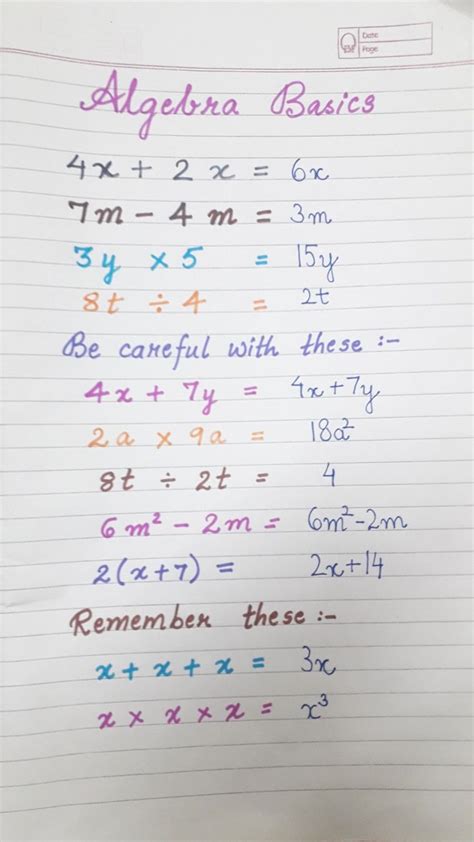 Date
Page
Algebra Basics
4x + 2x = 6x
7m - 4m = 3m
3y × 5 = 15y
8t ÷ 4 = 2t
Be careful with these :-
4x + 7y = 4x+7y
2a × 9a = 18a²
8t ÷ 2t = 4
6m² - 2m = 6m²-2m
2(x+7) = 2x+14
Remember these :-
x + x + x = 3x
x × x × x = x³